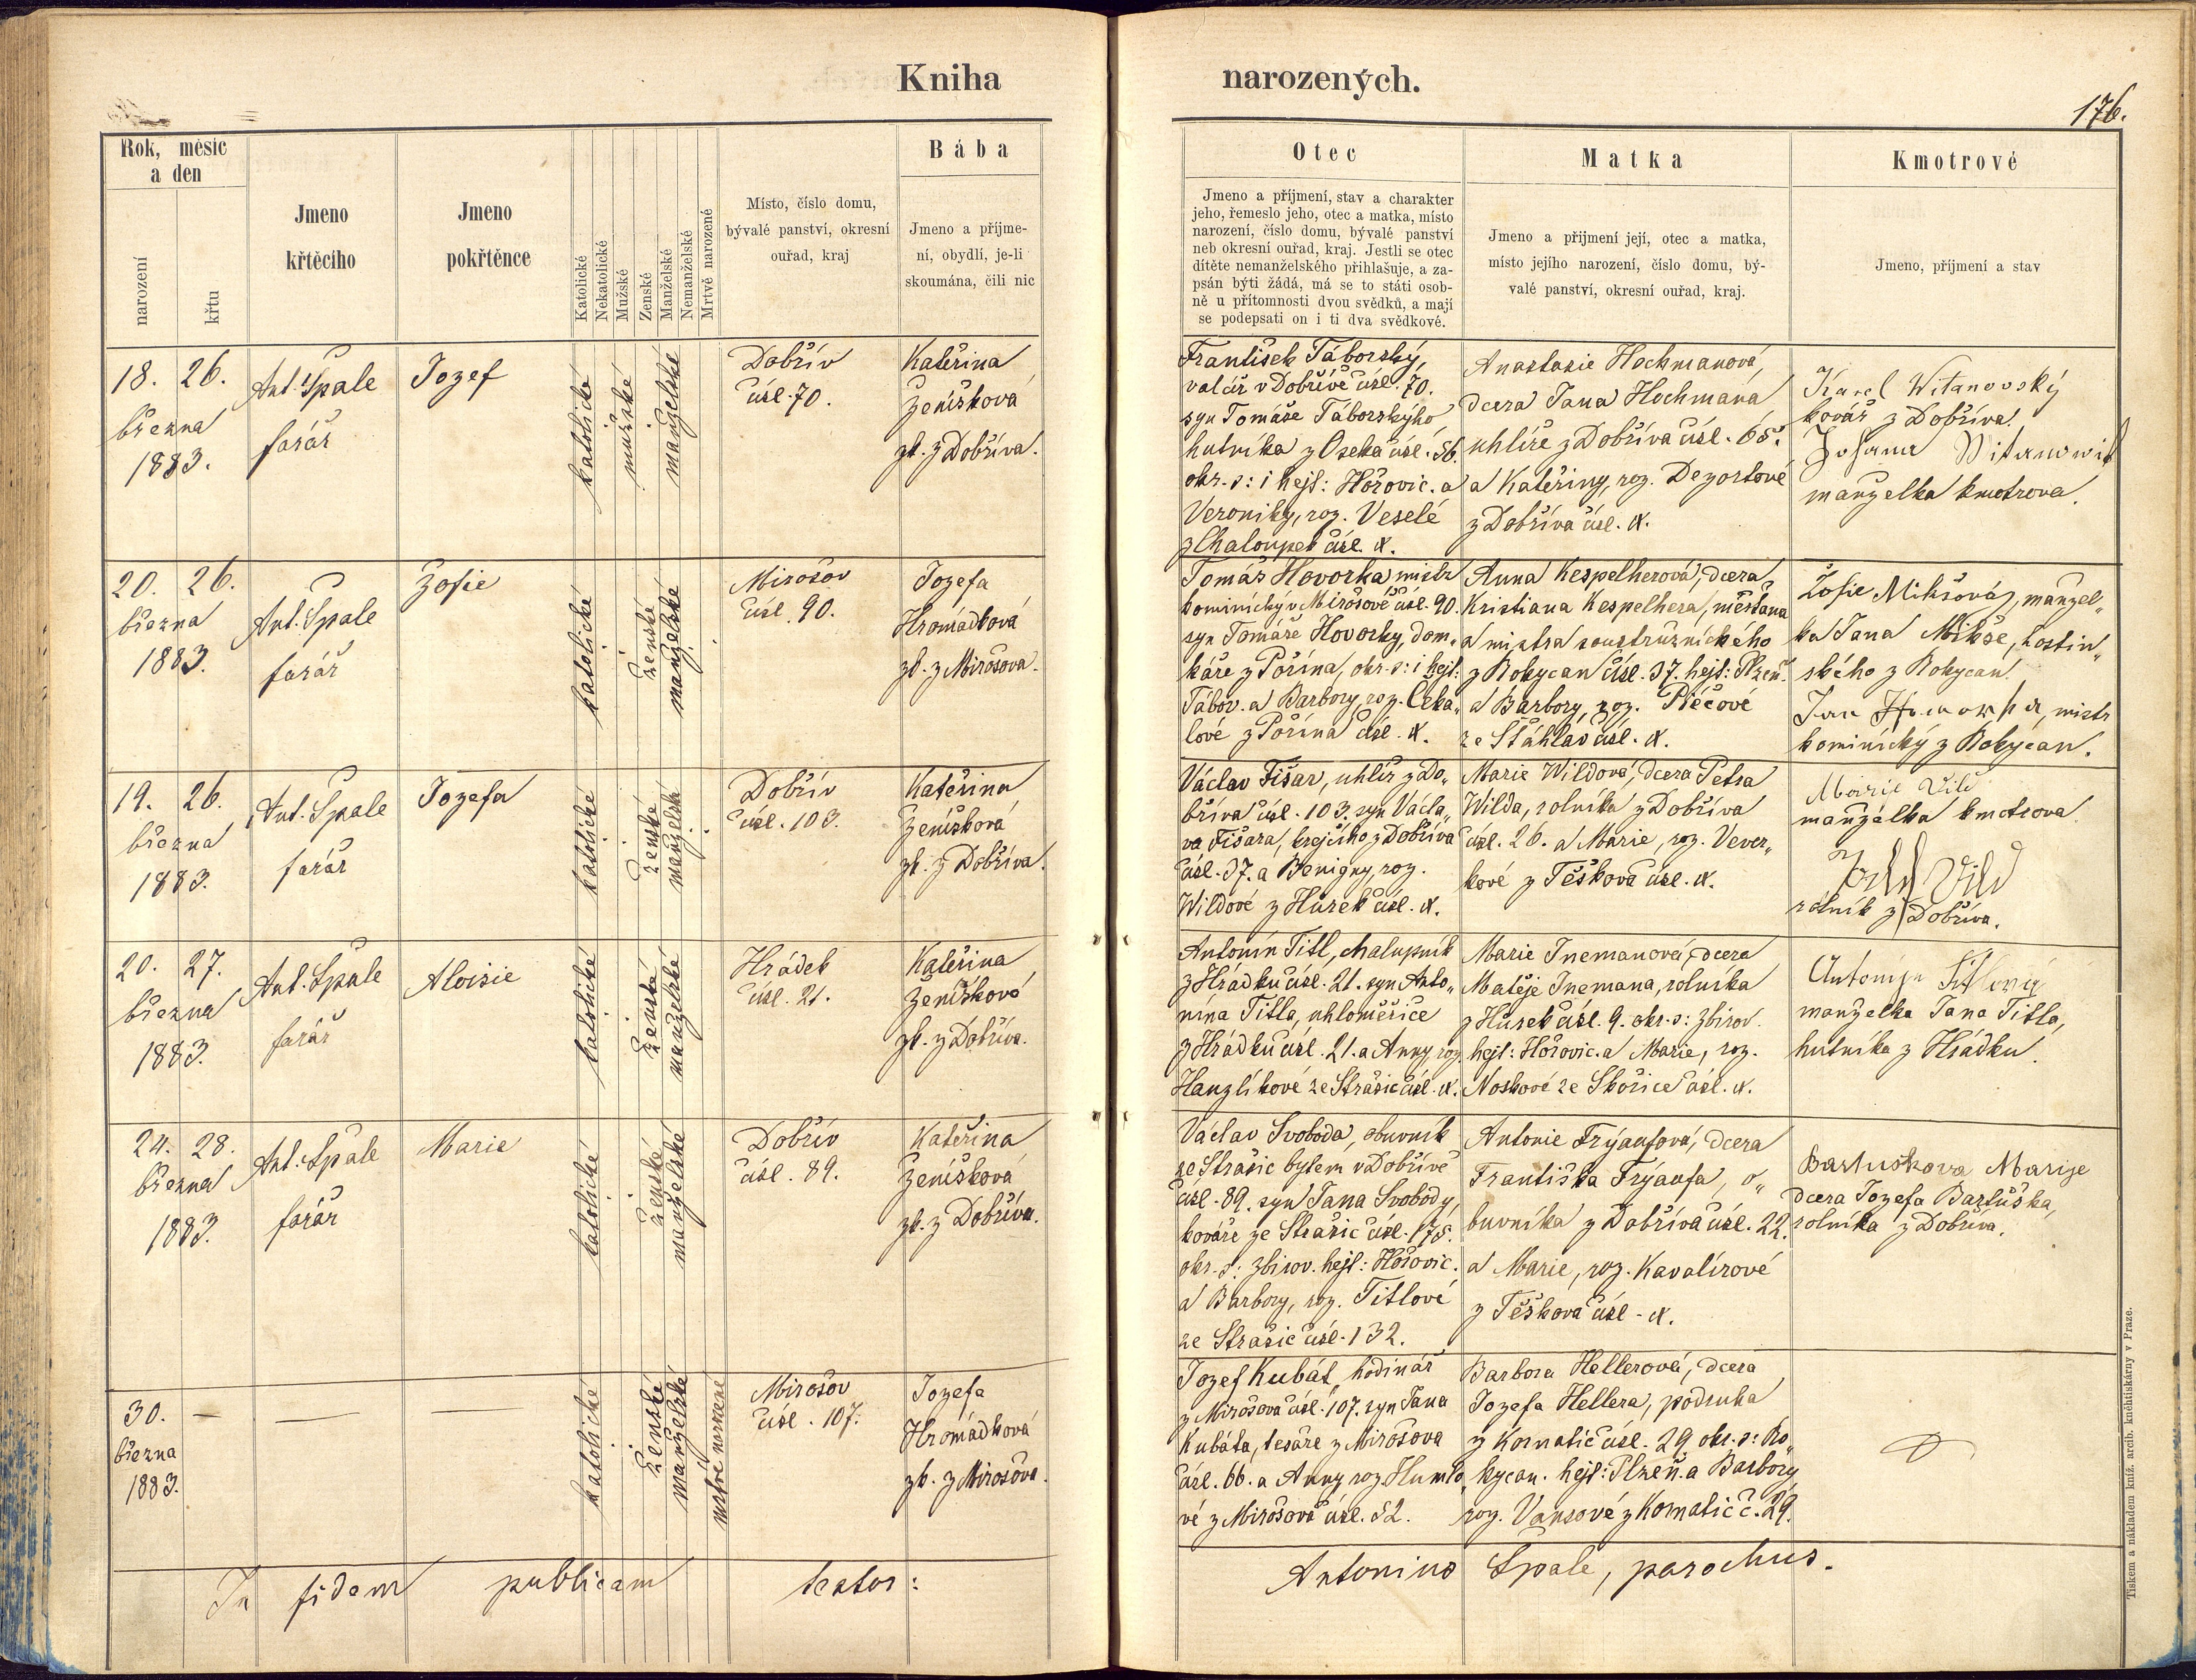 Kniha narozených.
176.
Rok, měsíc
a den
narození
křtu
Jmeno
křtěcího
Jmeno
pokřtěnce
Katolické
Nekatolické
Mužské
Ženské
Manželské
Nemanželské
Mrtvě narozené
Místo, číslo domu,
bývalé panství, okresní
ouřad, kraj
Bába
Jmeno a příjme-
ní, obydlí, je-li
skoumána, čili nic
Otec
Jmeno a příjmení, stav a charakter
jeho, řemeslo jeho, otec a matka, místo
narození, číslo domu, bývalé panství
neb okresní ouřad, kraj. Jestli se otec
dítěte nemanželského přihlašuje, a za-
psán býti žádá, má se to státi osob-
ně u přítomnosti dvou svědků, a mají
se podepsati on i ti dva svědkové.
Matka
Jmeno a přijmení její, otec a matka,
místo jejího narození, číslo domu, bý-
valé panství, okresní ouřad, kraj.
Kmotrové
Jmeno, příjmení a stav
18. 26.
března
1883.
Ant. Špale
farář
Jozef
katolické
mužské
manželské
Dobřív
čísl. 70.
Kateřina
Ženíšková
zk. z Dobříva.
František Táborský,
valcíř v Dobřívě čísl. 70.
syn Tomáše Táborskýho
hutníka z Oseka čísl. 56.
okr. s: i hejt: Hořovic. a
Veroniky, roz. Veselé
z Chaloupek čísl. d.
Anastasie Hochmanová,
dcera Jana Hochmana
uhlíře z Dobříva čísl. 65.
a Kateřiny, roz. Dezortové
z Dobříva čísl. d.
Karel Witanovský
kovář z Dobříva.
manželka kmotrova.
20. 26.
března
1883.
Ant. Špale
farář
Žofie
katolické
ženské
manželské
Mirošov
čísl. 90.
Jozefa
Hromádková
zk. z Mirošova.
Tomáš Hovorka mistr
kominický v Mirošově čísl. 90.
syn Tomáše Hovorky, dom„
káře z Pořína, okr. s: i hejt:
Tábor. a Barbory, roz. Čeka„
lové z Pořína čísl. d.
Anna Kespelherová, dcera
Kristiana Kespelhera, měšťana
a mistra soustružnického
z Rokycan čísl. 37. hejt: Plzeň.
a Barbory, roz. Pléčové
ze Šťáhlav čísl. d.
Žofie Mikšová, manžel„
ka Jana Mikše, hostin„
ského z Rokycan.
Jan, mistr
kominický z Rokycan.
19. 26.
března
1883.
Ant. Špale
farář
Jozefa
katolické
ženské
manželské
Dobřív
čísl. 103.
Kateřina
Ženíšková
zk. z Dobříva.
Václav Fišar, uhlíř z Do„
bříva čísl. 103. syn Václa„
va Fišara, krejčího z Dobříva
čísl. 37. a Benigny, roz.
Wildové z Hůrek čísl. d.
Marie Wildová, dcera Petra
Wilda, rolníka z Dobříva
čísl. 26. a Marie, roz. Vever„
kové z Těškova čísl. d.
Marie Vild
manželka kmotrova.
Vild
rolník z Dobříva.
20. 27.
března
1883.
Ant. Špale
farář
Aloisie
katolické
ženské
manželské
Hrádek
čísl. 21.
Kateřina
Ženíšková
zk. z Dobříva.
Antonín Titl, chalupník
z Hrádku čísl. 21. syn Anto„
nína Titla, uhloměřiče
z Hrádku čísl. 21. a Anny, roz.
Hanzlíkové ze Strašic čísl. d.
Marie Inemanová, dcera
Matěje Inemana, rolníka
z Hůrek čísl. 9. okr. s: Zbirov.
hejt: Hořovic. a Marie, roz.
Noskové ze Skořice čísl. d.
Antonije Titlová
manželka Jana Titla,
hutníka z Hrádku.
24. 28.
března
1883.
Ant. Špale
farář
Marie
katolické
ženské
manželské
Dobřív
čísl. 89.
Kateřina
Ženíšková
zk. z Dobříva.
Václav Svoboda, obuvník
ze Strašic bytem v Dobřívě
čísl. 89. syn Jana Svobody,
kováře ze Strašic čísl. 175.
okr. s: Zbirov. hejt: Hořovic.
a Barbory, roz. Titlové
ze Strašic čísl. 132.
Antonie Frýaufová, dcera
Františka Frýaufa, o„
buvníka z Dobříva čísl. 22.
a Marie, roz. Kavalírové
z Těškova čísl. d.
Bartuškova Marije
dcera Jozefa Bartuška,
rolníka z Dobříva.
30. —
března
1883.
—
—
katolické
ženské
manželské
mrtvě narozené
Mirošov
čísl. 107.
Jozefa
Hromádková
zk. z Mirošova.
Jozef Kubát, hodinář
z Mirošova čísl. 107. syn Jana
Kubáta, tesaře z Mirošova
čísl. 66. a Anny roz. Humlo„
vé z Mirošova čísl. 52.
Barbora Hellerová, dcera
Jozefa Hellera, podruha
z Kornatic čísl. 29. okr. s: Ro„
kycan. hejt: Plzeň. a Barbory
roz. Vansové z Kornatic č. 29.
In fidem publicam testor:
Antonius Špale, parochus.
Tiskem a nákladem kníž. arcib. kněhtiskárny v Praze.